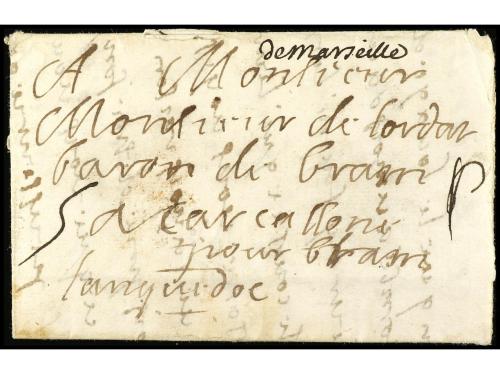 de Marseille
A Monsieur
Monsieur de lordat
baron de bram
5 a carcassonne
pour bram
languedoc